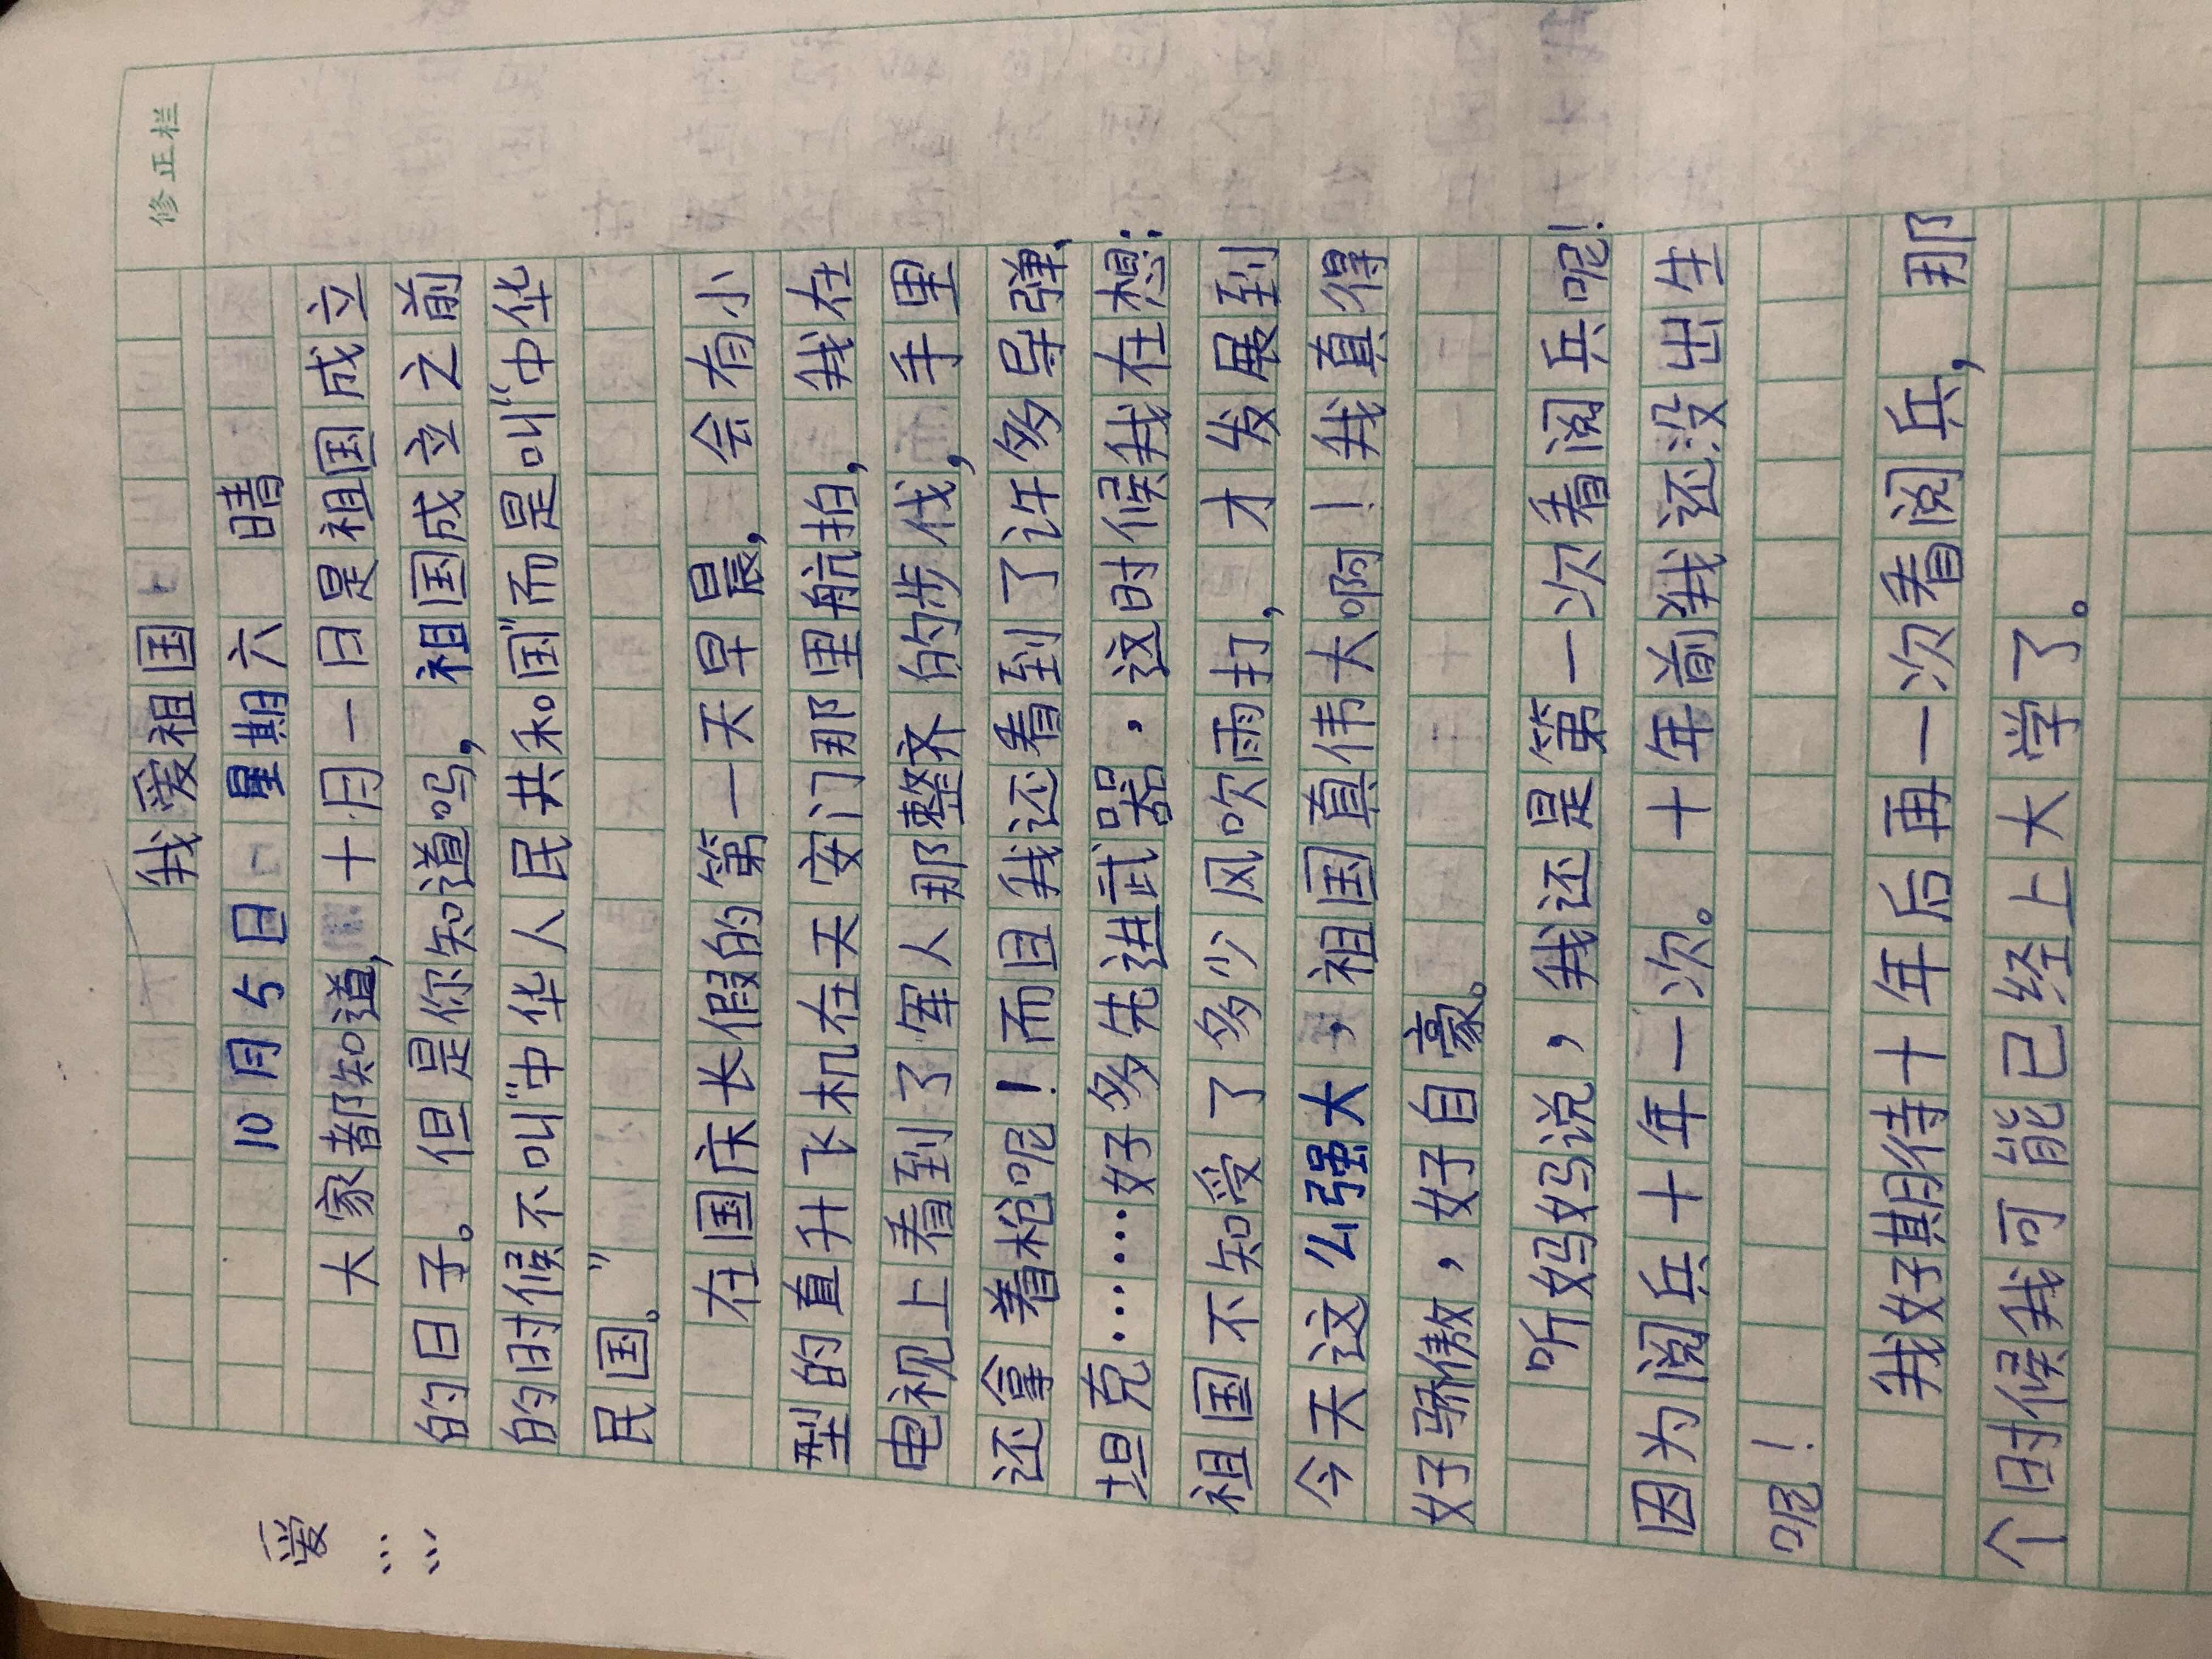 修正栏
我爱祖国
10月5日 星期六 晴
大家都知道，十月一日是祖国成立
的日子。但是你知道吗，祖国成立之前
的时候不叫“中华人民共和国”而是叫“中华
民国。”
在国庆长假的第一天早晨，会有小
型的直升飞机在天安门那里航拍，我在
电视上看到了军人那整齐的步伐，手里
还拿着枪呢！而且我还看到了许多导弹、
坦克……好多先进武器，这时候我在想：
祖国不知受了多少风吹雨打，才发展到
今天这么强大，祖国真伟大啊！我真得
好骄傲，好自豪。
听妈妈说，我还是第一次看阅兵呢！
因为阅兵十年一次。十年前我还没出生
呢！
我好期待十年后再一次看阅兵，那
个时候我可能已经上大学了。
爱
……